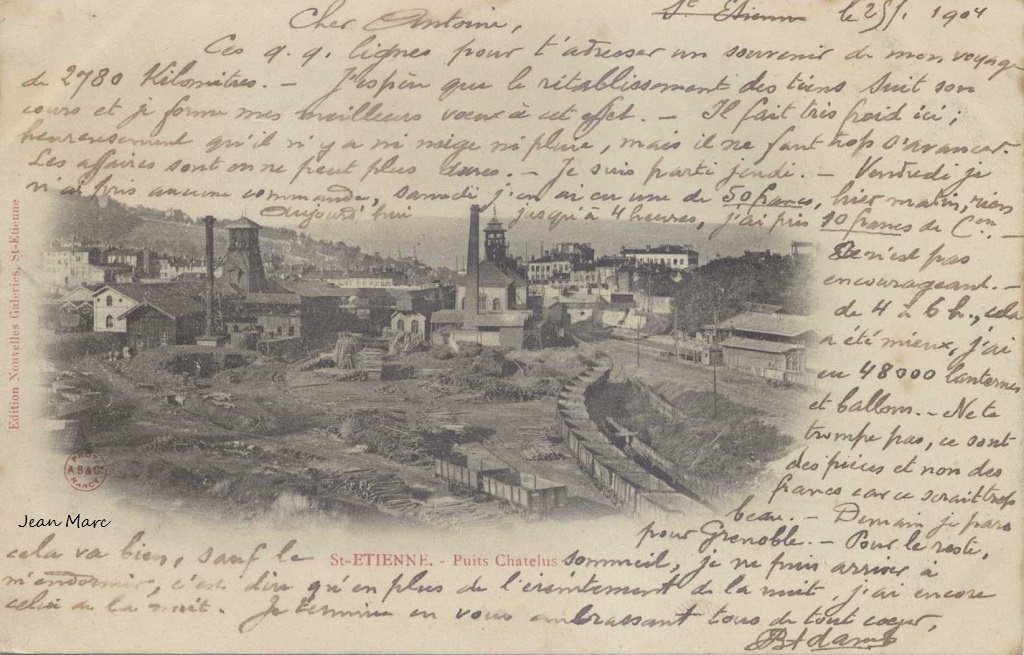 St Etienne le 25/1. 1904
Cher Antoine,
Ces q.q. lignes pour t'adresser un souvenir de mon voyage
de 2780 Kilomètres. - J'espère que le rétablissement des tiens suit son
cours et je forme mes meilleurs voeux à cet effet. - Il fait très froid ici;
heureusement qu'il n'y a ni neige ni pluie, mais il ne faut trop s'avancer.
Les affaires sont on ne peut plus dures. - Je suis parti jeudi. - Vendredi je
n'ai pris aucune commande, samedi j'en ai eu une de 50 francs, hier matin, rien
Aujourd'hui jusqu'à 4 heures, j'ai pris 10 francs de Con. -
Ce n'est pas
encourageant. -
de 4 à 6 h., cela
a été mieux, j'ai
eu 48000 lanternes
et ballons. - Ne te
trompe pas, ce sont
des pièces et non des
francs car ce serait trop
beau. - Demain je pars
pour Grenoble. - Pour le reste,
cela va bien, sauf le sommeil, je ne puis arriver à
m'endormir, c'est dire qu'en plus de l'éreintement de la nuit, j'ai encore
celui de la nuit. Je termine en vous embrassant tous de tout coeur,
Edition Nouvelles Galeries, St-Etienne
PHOT
A.B & Cie
NANCY
Jean Marc
St-ETIENNE. - Puits Chatelus